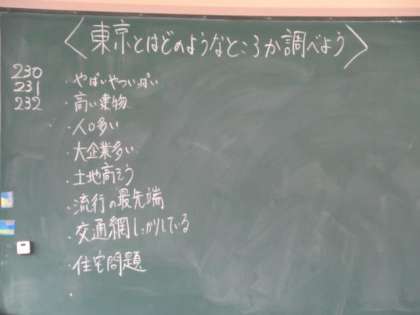 〈東京とはどのようなところか調べよう〉
230
231
232
・やばいやついっぱい
・高い建物
・人口多い
・大企業多い
・土地高そう
・流行の最先端
・交通網しっかりしている
・住宅問題